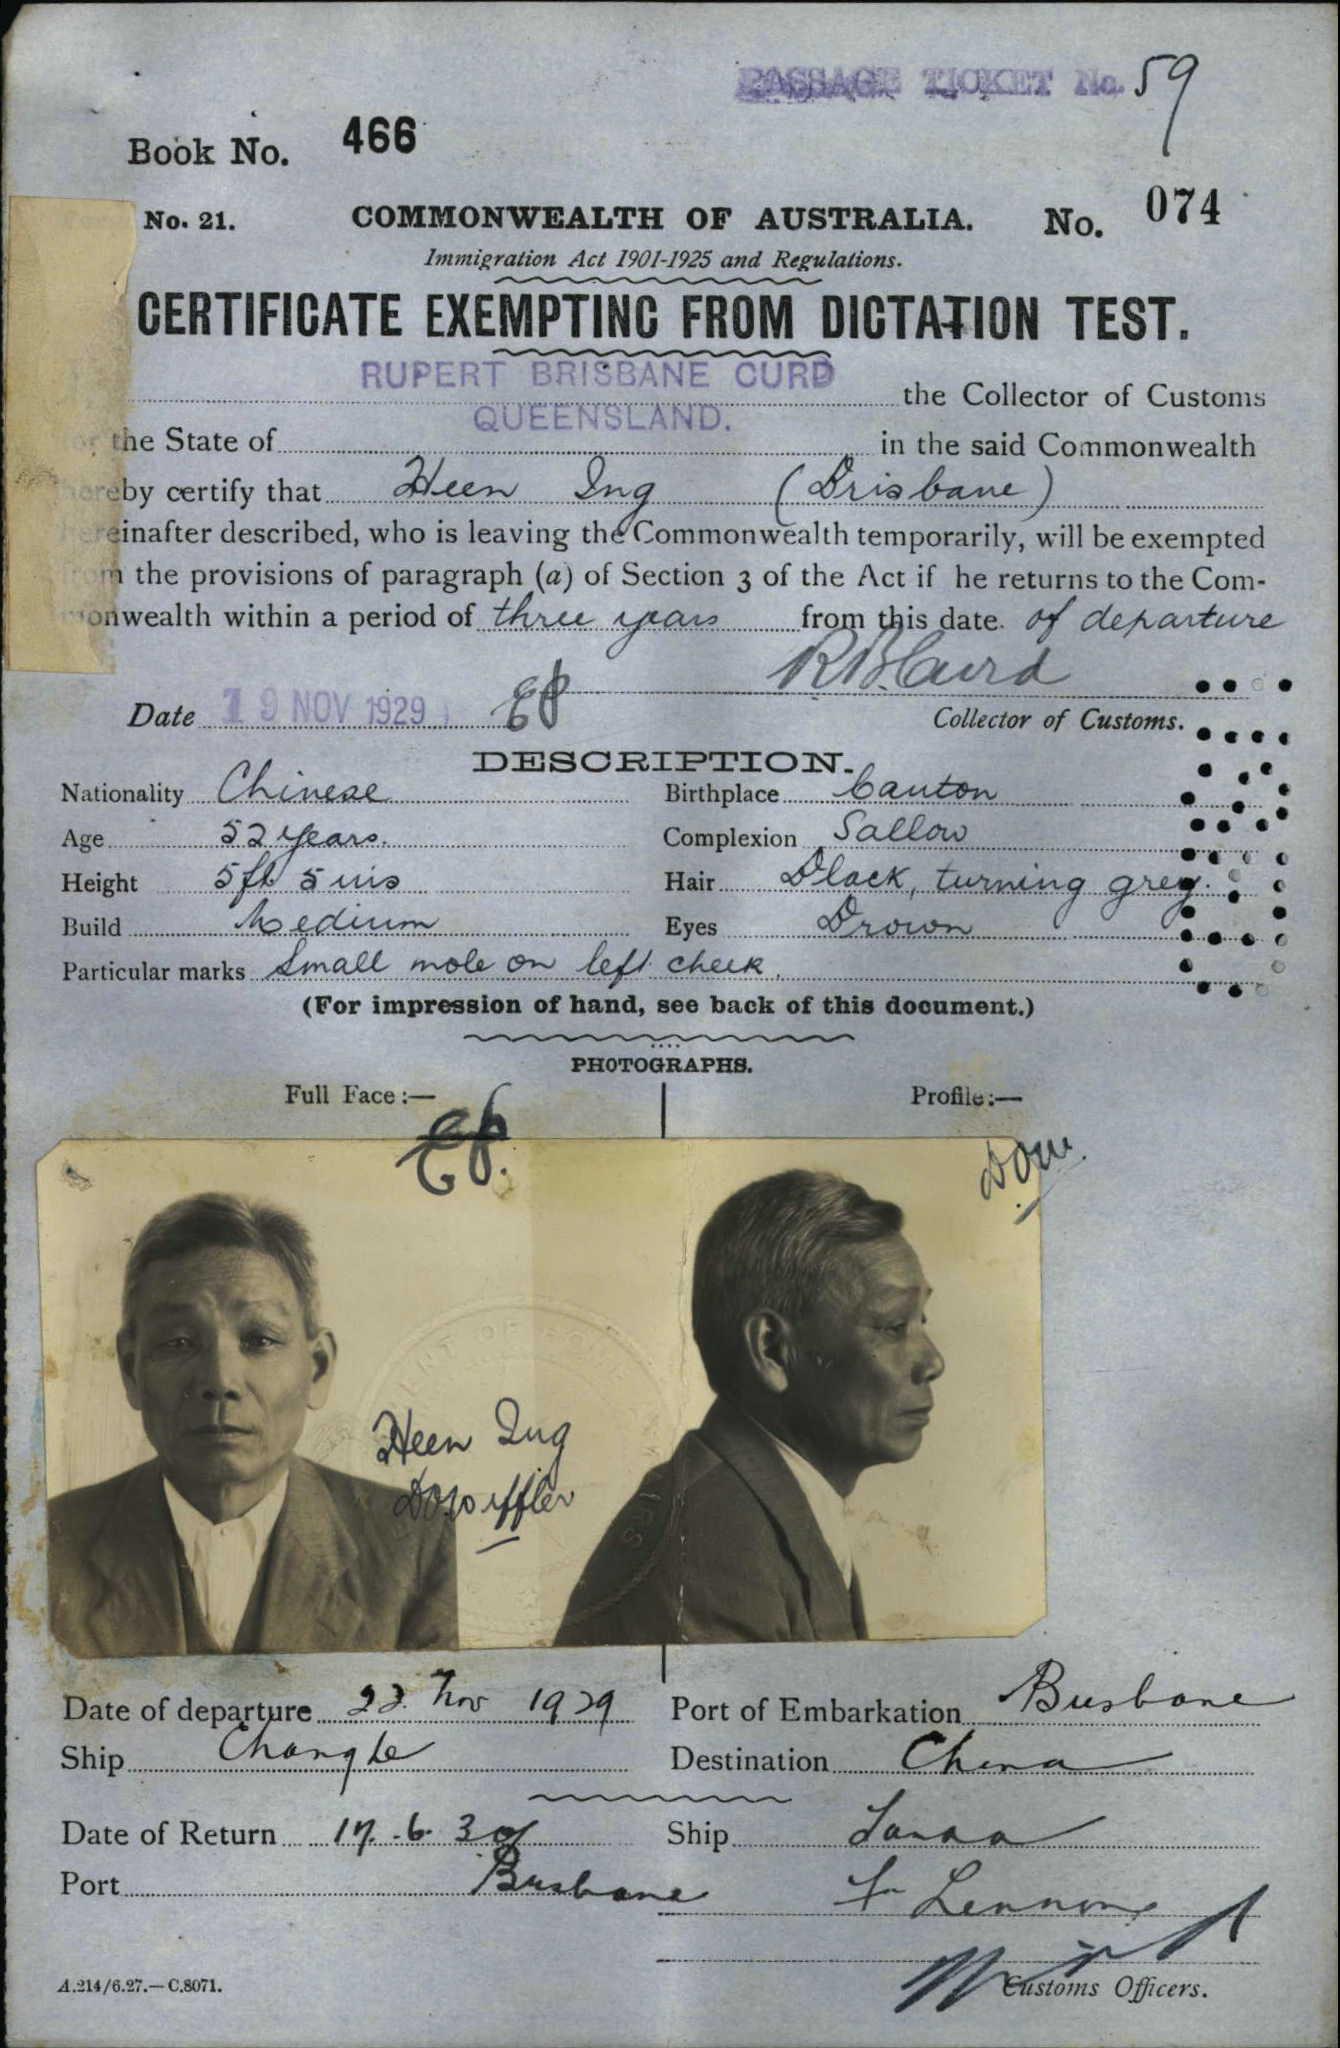 PASSAGE TICKET No. 59
Book No. 466
No. 21. COMMONWEALTH OF AUSTRALIA. No. 074
Immigration Act 1901-1925 and Regulations.
CERTIFICATE EXEMPTING FROM DICTATION TEST.
RUPERT BRISBANE CURD the Collector of Customs
for the State of QUEENSLAND. in the said Commonwealth
hereby certify that Heen Ing (Brisbane)
hereinafter described, who is leaving the Commonwealth temporarily, will be exempted
from the provisions of paragraph (a) of Section 3 of the Act if he returns to the Com-
monwealth within a period of three years from this date of departure
R B Curd
Date 19 NOV 1929 Collector of Customs.
DESCRIPTION.
Nationality Chinese Birthplace Canton
Age 52 years. Complexion Sallow
Height 5 ft 5 ins Hair Black, turning grey.
Build Medium Eyes Brown
Particular marks Small mole on left cheek.
(For impression of hand, see back of this document.)
PHOTOGRAPHS.
Full Face:— Profile:—
Heen Ing
Date of departure 23 Nov 1929 Port of Embarkation Brisbane
Ship Changte Destination China
Date of Return 17.6.30 Ship Tanda
Port Brisbane Lennon
A.214/6.27.—C.8071. Customs Officers.